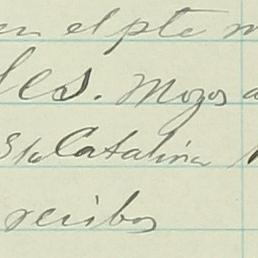 en el pte m
les. Mozos a
Sta Catalina
recibos